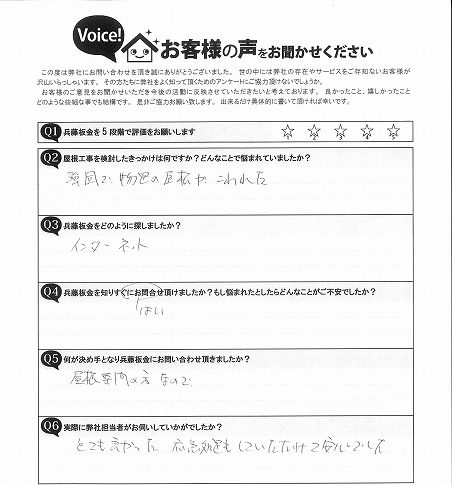 Voice!
お客様の声をお聞かせください
この度は弊社にお問い合わせを頂き誠にありがとうございました。世の中には弊社の存在やサービスをご存知ないお客様が
沢山いらっしゃいます。その方たちに弊社をよく知って頂くためのアンケートにご協力頂けないでしょうか。
お客様のご意見をお聞かせいただき今後の活動に反映させていただきたいと考えております。良かったこと、嬉しかったこと
どのような些細な事でも結構です。是非ご協力お願い致します。出来るだけ具体的に書いて頂ければ幸いです。
Q1 兵藤板金を5段階で評価をお願いします
☆1 ☆2 ☆3 ☆4 ☆5
Q2 屋根工事を検討したきっかけは何ですか?どんなことで悩まれていましたか?
強風で物置の屋根がこわれた
Q3 兵藤板金をどのように探しましたか?
インターネット
Q4 兵藤板金を知りすぐにお問合せ頂けましたか?もし悩まれたとしたらどんなことがご不安でしたか?
はい
Q5 何が決め手となり兵藤板金にお問い合わせ頂きましたか?
屋根専門の方なので
Q6 実際に弊社担当者がお伺いしていかがでしたか?
とても良かった 応急処置もしていただけて安心でした